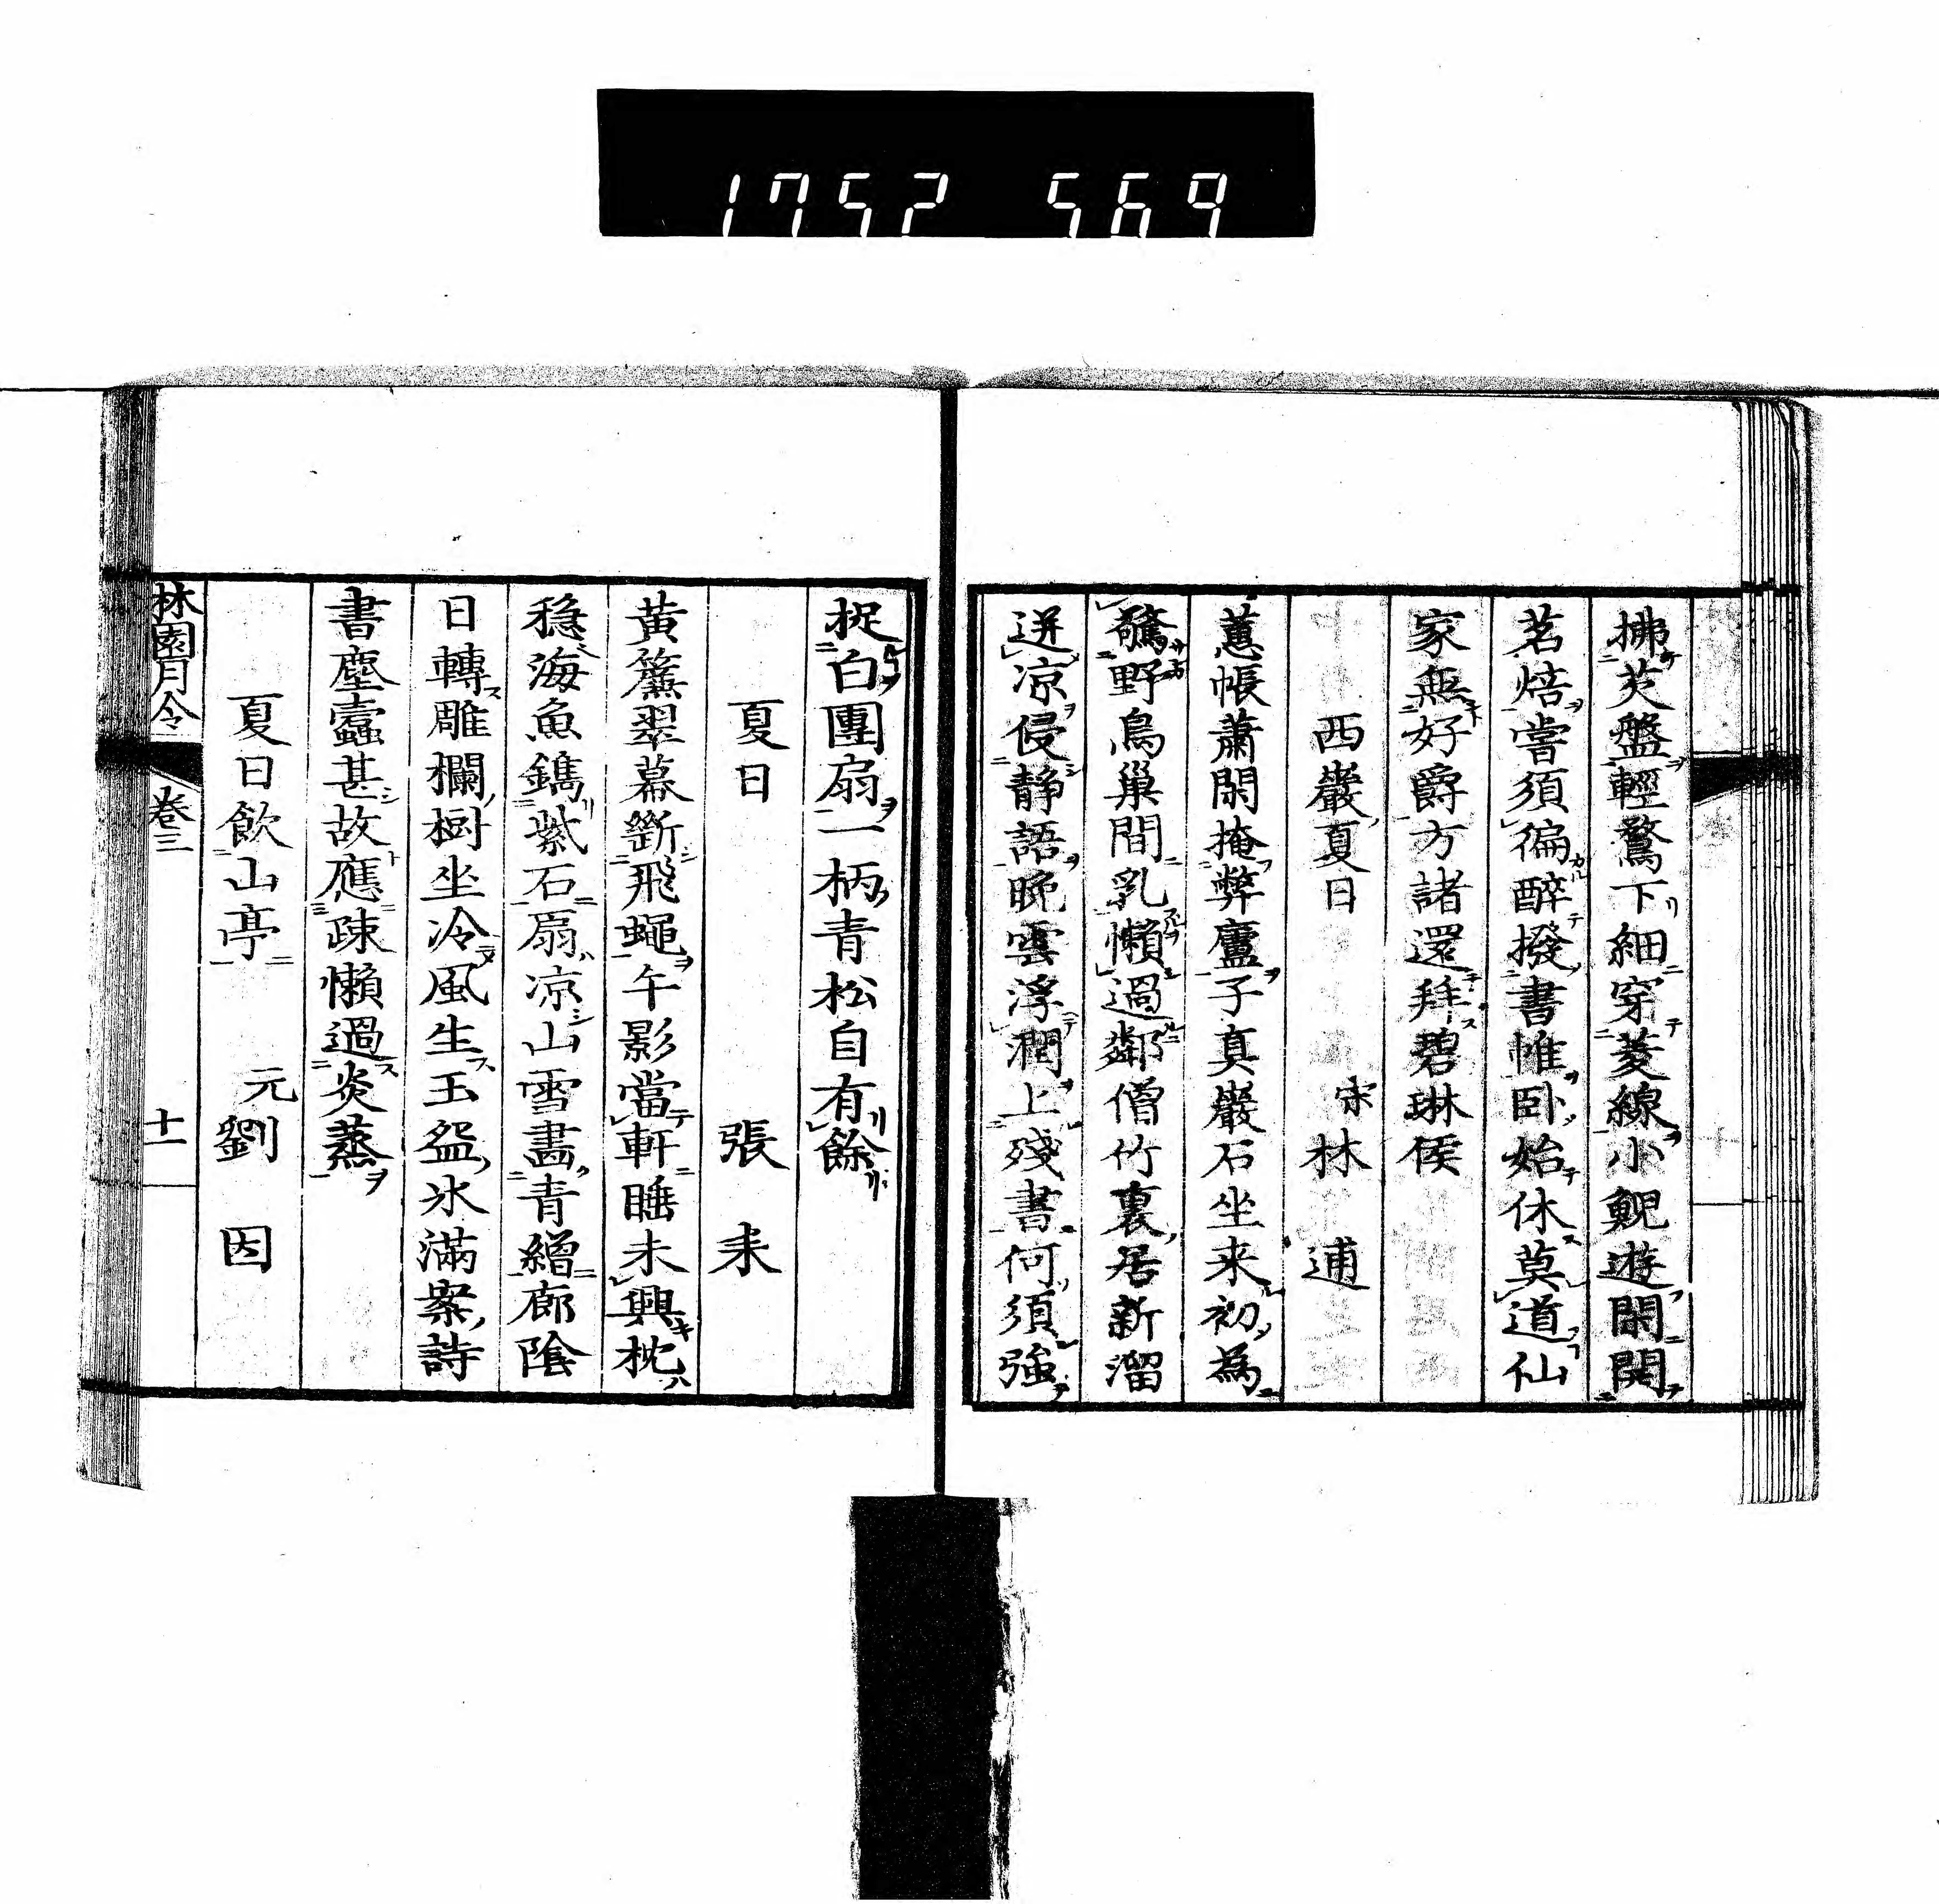 1752 569
拂芡盤輕鶩下細穿菱線小鯢遊閑開
茗焙嘗須徧醉撥書帷卧始休莫道仙
家無好爵方諸還拜碧琳侯
西巖夏日 宋林逋
蕙帳蕭閑掩弊廬子真巖石坐来初為
驚野鳥巢間乳懶過鄰僧竹裏居新溜
迸凉侵静語晩雲浮潤上殘書何須強
捉白團扇一柄青松自有餘
夏日 張耒
黃簾翠幕斷飛蠅午影當軒睡未興枕
穏海魚鐫紫石扇凉山雪畵青繒廊陰
日轉雕欄樹坐冷風生玉盌氷滿案詩
書塵蠹甚故應疎懶過炎蒸
夏日飲山亭 元劉因
林園月令 卷三 十一